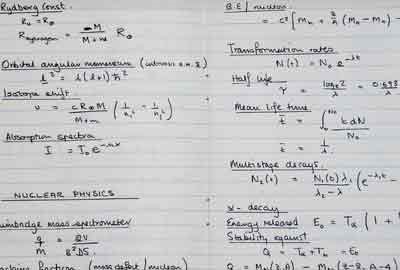 Rydberg Const.
R₀ = R∞
R hydrogen = M / M + m R∞
Orbital angular momentum (intrinsic
l² = l(l+1) ħ²
Isotope shift.
υ = c R∞ M / M + m ( 1/n₁² - 1/n₂² )
Absorption spectra
I = I₀ e
NUCLEAR PHYSICS
mass spectrometer
q / m = 2V / B² D S
fraction (mass defect / nucleon)
B.E / nucleon
= c² [ Mn + Z/A (MH - Mn) -
Transformation rates
N(t) = N₀ e^-λt
Half life
τ = loge 2 / λ = 0.693
Mean life time
t̄ = ∫ t dN / N₀
t̄ = 1/λ
Multistage decays.
N₂(t) = N₁(0) λ₁ / λ₂ - λ ( e^-λ₁t -
α - decay
Energy released E₀ = Tα ( 1 +
Stability against
Q = Tα + Th = E₀
Q = (Z, A) - (Z-2, A-4)